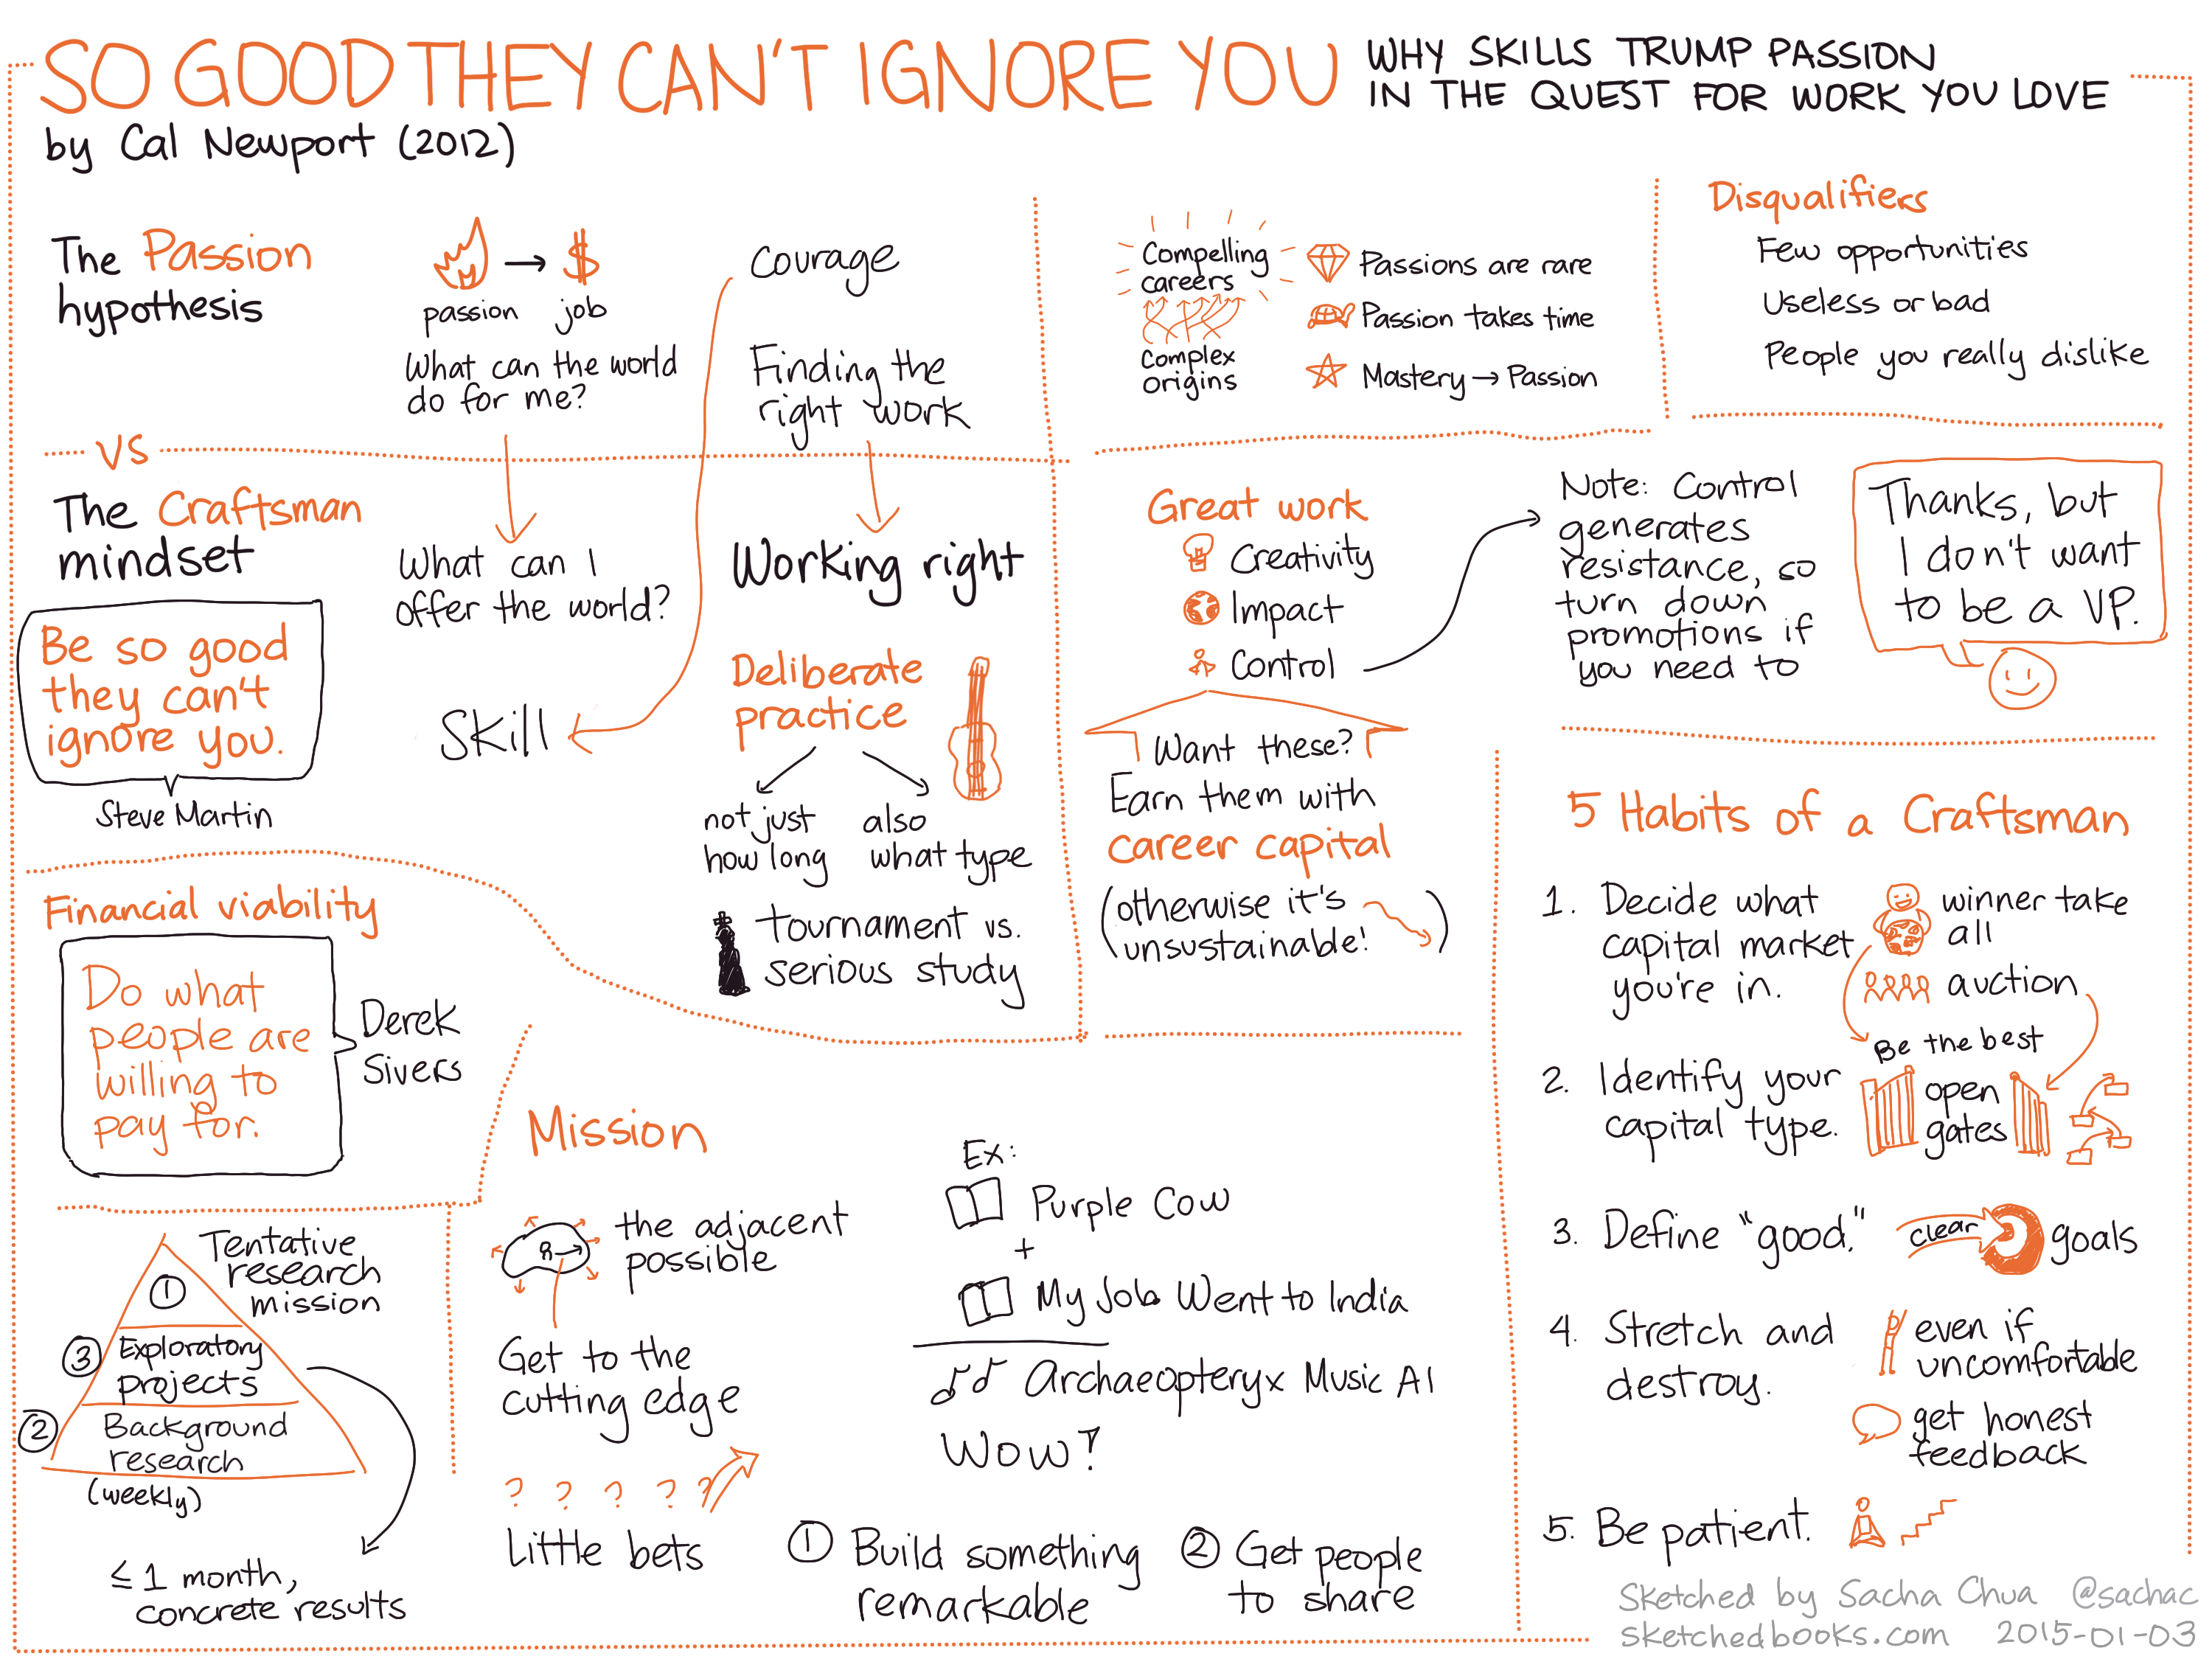 SO GOOD THEY CAN'T IGNORE YOU
WHY SKILLS TRUMP PASSION
IN THE QUEST FOR WORK YOU LOVE
by Cal Newport (2012)
The Passion
hypothesis
passion
job
What can the world
do for me?
Courage
Finding the
right work
VS
The Craftsman
mindset
Be so good
they can't
ignore you.
Steve Martin
What can I
offer the world?
Skill
Working right
Deliberate
practice
not just
how long
also
what type
tournament vs.
serious study
Compelling
careers
Complex
origins
Passions are rare
Passion takes time
Mastery → Passion
Disqualifiers
Few opportunities
Useless or bad
People you really dislike
Great work
Creativity
Impact
Control
Want these?
Earn them with
career capital
(otherwise it's
unsustainable! )
Note: Control
generates
resistance, so
turn down
promotions if
you need to
Thanks, but
I don't want
to be a VP.
Financial viability
Do what
people are
willing to
pay for.
Derek
Sivers
Tentative
research
mission
1
3 Exploratory
projects
2 Background
research
(weekly)
≤ 1 month,
concrete results
Mission
the adjacent
possible
Get to the
cutting edge
? ? ? ? ?
Little bets
Ex:
Purple Cow
+
My Job Went to India
Archaeopteryx Music AI
Wow!
1 Build something
remarkable
2 Get people
to share
5 Habits of a Craftsman
1. Decide what
capital market
you're in.
winner take
all
auction
Be the best
2. Identify your
capital type.
open
gates
3. Define "good."
clear
goals
4. Stretch and
destroy.
even if
uncomfortable
get honest
feedback
5. Be patient.
Sketched by Sacha Chua @sachac
sketchedbooks.com 2015-01-03